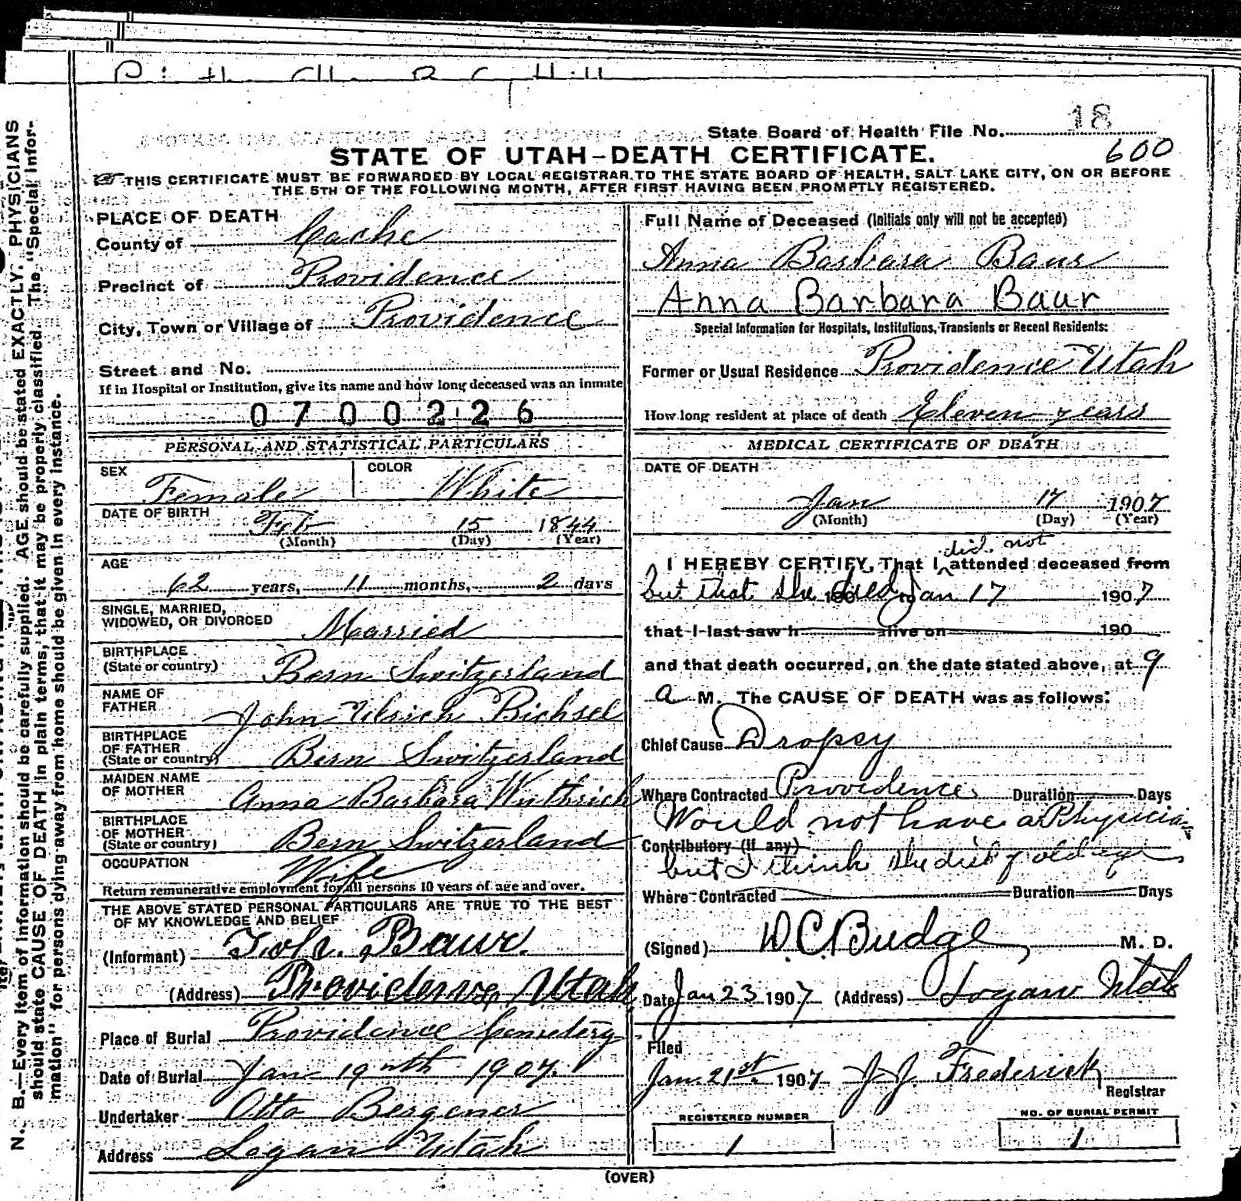 State Board of Health File No. 18
600
STATE OF UTAH-DEATH CERTIFICATE.
THIS CERTIFICATE MUST BE FORWARDED BY LOCAL REGISTRAR TO THE STATE BOARD OF HEALTH, SALT LAKE CITY, ON OR BEFORE
THE 5TH OF THE FOLLOWING MONTH, AFTER FIRST HAVING BEEN PROMPTLY REGISTERED.
PLACE OF DEATH
County of Cache
Precinct of Providence
City, Town or Village of Providence
Street and No.
If in Hospital or Institution, give its name and how long deceased was an inmate
0700226
PERSONAL AND STATISTICAL PARTICULARS
SEX Female COLOR White
DATE OF BIRTH Feb 15 1844
(Month) (Day) (Year)
AGE
62 years, 11 months, 2 days
SINGLE, MARRIED,
WIDOWED, OR DIVORCED Married
BIRTHPLACE
(State or country) Bern Switzerland
NAME OF
FATHER John Ulrich Bichsel
BIRTHPLACE
OF FATHER
(State or country) Bern Switzerland
MAIDEN NAME
OF MOTHER Anna Barbara Wuthrich
BIRTHPLACE
OF MOTHER
(State or country) Bern Switzerland
OCCUPATION Wife
Return remunerative employment for all persons 10 years of age and over.
THE ABOVE STATED PERSONAL PARTICULARS ARE TRUE TO THE BEST
OF MY KNOWLEDGE AND BELIEF
(Informant) Joh. Baur.
(Address) Providence, Utah
Place of Burial Providence Cemetery
Date of Burial Jan 19th 1907.
Undertaker Otto Bergener
Address Logan Utah
Full Name of Deceased (Initials only will not be accepted)
Anna Barbara Baur
Anna Barbara Baur
Special Information for Hospitals, Institutions, Transients or Recent Residents:
Former or Usual Residence Providence Utah
How long resident at place of death Eleven years
MEDICAL CERTIFICATE OF DEATH
DATE OF DEATH
Jan 17 1907
(Month) (Day) (Year)
did not
I HEREBY CERTIFY, That I attended deceased from
but that she died Jan 17 1907
that I last saw h alive on 190
and that death occurred, on the date stated above, at 9
a M. The CAUSE OF DEATH was as follows:
Chief Cause Dropsy
Where Contracted Providence Duration Days
Would not have a Physician
Contributory (if any)
but I think she died of old age
Where Contracted Duration Days
(Signed) D.C. Budge, M. D.
Date Jan 23 1907 (Address) Logan Utah
Filed
Jan. 21st 1907 J J. Frederick
Registrar
REGISTERED NUMBER
1
NO. OF BURIAL PERMIT
1
(OVER)
N. B.—Every item of information should be carefully supplied. AGE should be stated EXACTLY. PHYSICIANS
should state CAUSE OF DEATH in plain terms, that it may be properly classified. The "Special Infor-
mation" for persons dying away from home should be given in every instance.